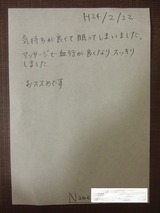 H24/2/22
気持ちが良くて眠ってしまいました。
マッサージで血行が良くなりスッキリ
しました
おススメです
Name